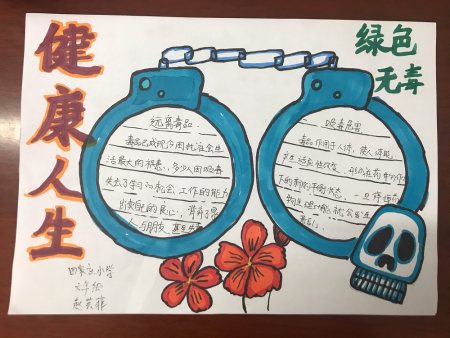 健康人生
绿色
无毒
远离毒品
毒品已成现今困扰社会生
活最大的祸患,多少人因吸毒
失去了学习的机会、工作的能力
出卖自己的良心,背弃了
人与朋友、甚至失去
吸毒危害
毒品作用于人体,使人体
产生适应性改变,形成在药物作用
下的新的平衡状态,一旦停
生理功能就会发生
紊乱
小学
六年级
赵英菲